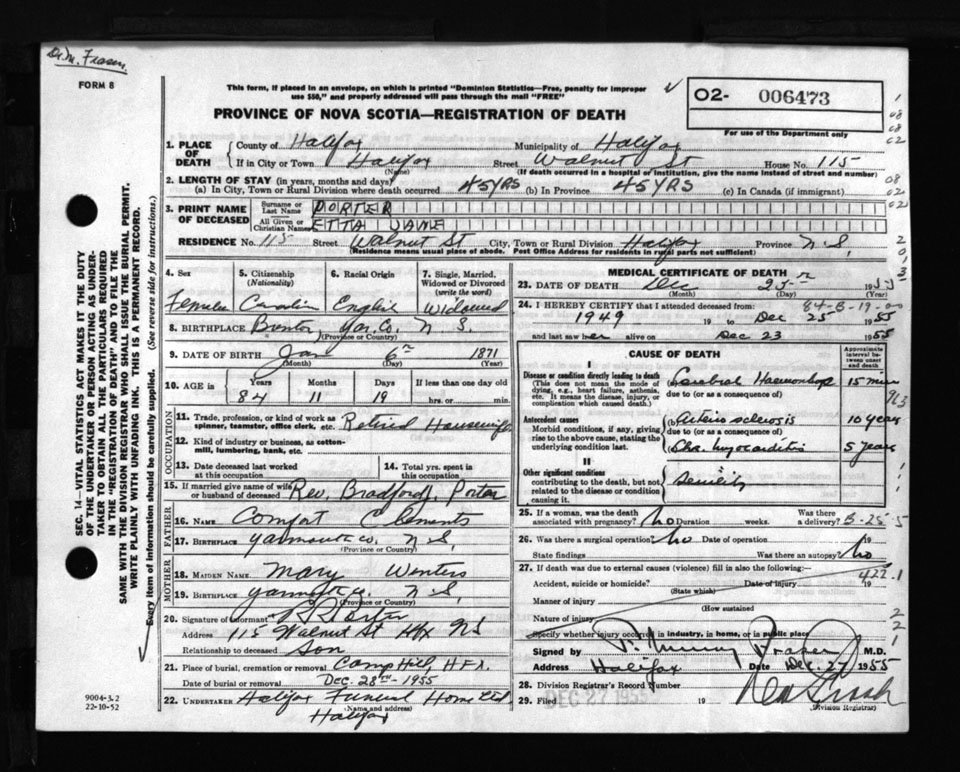 Dr. M. Fraser
FORM 8
This form, if placed in an envelope, on which is printed "Dominion Statistics—Free, penalty for improper
use $50," and properly addressed will pass through the mail "FREE"
PROVINCE OF NOVA SCOTIA—REGISTRATION OF DEATH
02- 006473
For use of the Department only
1. PLACE OF DEATH
County of Halifax Municipality of Halifax
If in City or Town Halifax Street Walnut St House No. 115
(Name) (If death occurred in a hospital or institution, give the name instead of street and number)
2. LENGTH OF STAY (in years, months and days)
(a) In City, Town or Rural Division where death occurred 45 YRS (b) In Province 45 YRS (c) In Canada (if immigrant)
3. PRINT NAME OF DECEASED
Surname or Last Name PORTER
All Given or Christian Names ETTA JANE
RESIDENCE No. 115 Street Walnut St City, Town or Rural Division Halifax Province N.S.
(Residence means usual place of abode. Post Office Address for residents in rural parts not sufficient)
4. Sex
Female
5. Citizenship (Nationality)
Canadian
6. Racial Origin
English
7. Single, Married, Widowed or Divorced (write the word)
Widowed
8. BIRTHPLACE Yar. Co. N S.
(Province or Country)
9. DATE OF BIRTH Jan 6th 1871
(Month) (Day) (Year)
10. AGE in Years Months Days If less than one day old
84 11 19 hrs. or min.
OCCUPATION
11. Trade, profession, or kind of work as spinner, teamster, office clerk, etc. Retired Housewife
12. Kind of industry or business, as cotton-mill, lumbering, bank, etc.
13. Date deceased last worked at this occupation
14. Total yrs. spent in this occupation
15. If married give name of wife or husband of deceased Rev. Bradford J. Porter
FATHER
16. NAME Comfort Clements
17. BIRTHPLACE Yarmouth co. N S,
(Province or Country)
MOTHER
18. MAIDEN NAME Mary Winters
19. BIRTHPLACE Yarmouth co. N S,
(Province or Country)
20. Signature of informant Porter
Address 115 Walnut St Hfx NS
Relationship to deceased Son
21. Place of burial, cremation or removal Camp Hill, HFX.
Date of burial or removal Dec. 28th - 1955
22. UNDERTAKER Halifax Funeral Home Ltd
(Name and address)
Halifax
MEDICAL CERTIFICATE OF DEATH
23. DATE OF DEATH Dec 25th 1955
(Month) (Day)
84-B-19-00
24. I HEREBY CERTIFY that I attended deceased from:
1949 19 to Dec 25 1955
and last saw her alive on Dec 23 1955
CAUSE OF DEATH
Approximate interval between onset and death
I
Disease or condition directly leading to death
(This does not mean the mode of dying, e.g., heart failure, asthenia, etc. It means the disease, injury, or complication which caused death.)
(a) Cerebral Haemorrhage 15 min
due to (or as a consequence of)
Antecedent causes
Morbid conditions, if any, giving rise to the above cause, stating the underlying condition last.
(b) Arteriosclerosis 10 years
due to (or as a consequence of)
(c) Chr. myocarditis 5 years
II
Other significant conditions
contributing to the death, but not related to the disease or condition causing it.
Senility
25. If a woman, was the death associated with pregnancy? No Duration weeks. Was there a delivery? B-25-5
26. Was there a surgical operation? No Date of operation 19
State findings Was there an autopsy? No
27. If death was due to external causes (violence) fill in also the following:—
422.1
Accident, suicide or homicide? Date of injury 19
(State which)
Manner of injury
(How sustained
Nature of injury
Specify whether injury occurred in industry, in home, or in public place
Signed by T. Murray Fraser M.D.
Address Halifax Date Dec. 27 1955
28. Division Registrar's Record Number
29. Filed DEC 27 1955 19
(Division Registrar)
SEC. 14—VITAL STATISTICS ACT MAKES IT THE DUTY
OF THE UNDERTAKER OR PERSON ACTING AS UNDER-
TAKER TO OBTAIN ALL THE PARTICULARS REQUIRED
IN THE "REGISTRATION OF DEATH" AND TO FILE THE
SAME WITH THE DIVISION REGISTRAR WHO SHALL ISSUE THE BURIAL PERMIT.
WRITE PLAINLY WITH UNFADING INK. THIS IS A PERMANENT RECORD.
Every item of information should be carefully supplied. (See reverse side for instructions.)
9004-3.2
22-10-52